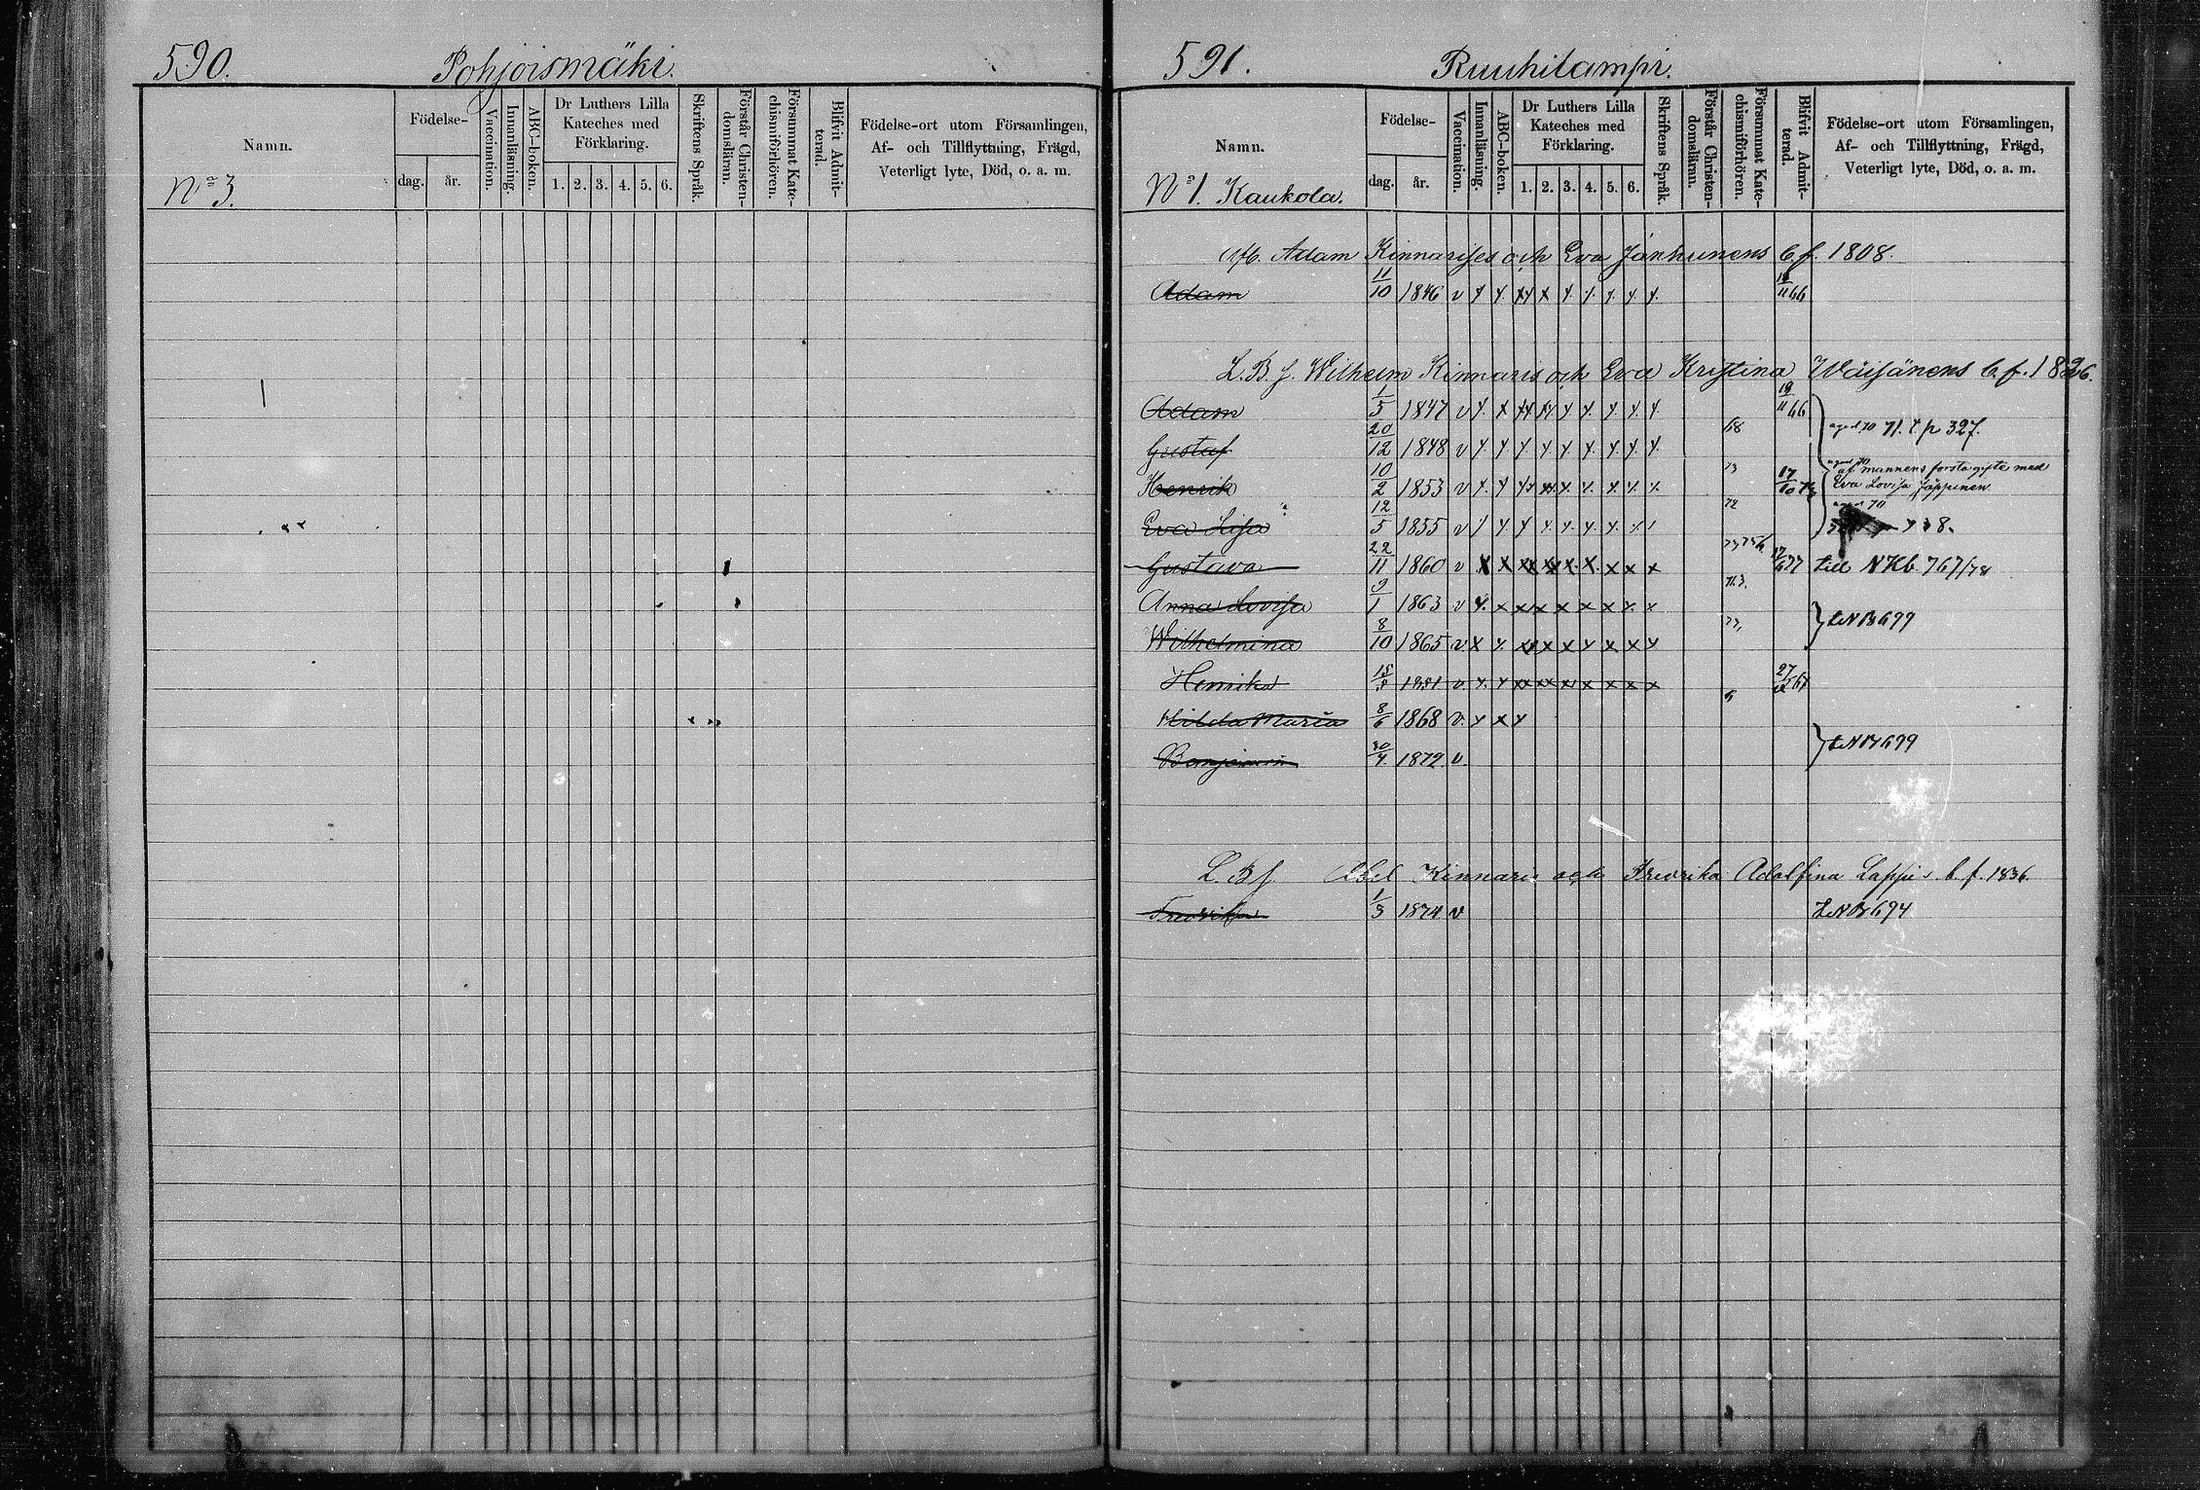 590. Pohjoismäki.
Namn.
Födelse-
dag. år.
Vaccination.
Innanläsning.
ABC-boken.
Dr Luthers Lilla
Kateches med
Förklaring.
1. 2. 3. 4. 5. 6.
Skriftens Språk.
Förstår Christen-
domsläran.
Försummat Kate-
chismiförhören.
Blifvit Admit-
terad.
Födelse-ort utom Församlingen,
Af- och Tillflyttning, Frägd,
Veterligt lyte, Död, o. a. m.
No 3.
591. Ruuhilampi.
Namn.
Födelse-
dag. år.
Vaccination.
Innanläsning.
ABC-boken.
Dr Luthers Lilla
Kateches med
Förklaring.
1. 2. 3. 4. 5. 6.
Skriftens Språk.
Förstår Christen-
domsläran.
Försummat Kate-
chismiförhören.
Blifvit Admit-
terad.
Födelse-ort utom Församlingen,
Af- och Tillflyttning, Frägd,
Veterligt lyte, Död, o. a. m.
No 1. Kaukola.
Adam Kinnarises och Eva Janhunens b. f. 1808.
Adam 11/10 1846 v
L. B. f. Wilhelm Kinnaris och Eva Kristina Wäisänens b. f. 1826.
Adam 1/5 1847 v
Gustaf 20/12 1848 v 68 71. t. p 327.
Henrik 10/2 1853 v 73 af mannens första gifte med
Eva Lovisa Jäppinen
Eva Lisa 12/5 1855 v 72
Gustava 22/11 1860 v till NKb 767/78
Anna Lovisa 9/1 1863 v
LNB 699
Wilhelmina 8/10 1865 v
Henrika 1851 v
Hilda Maria 8/6 1868 v
LNB 699
Benjamin 30/4 1872 v.
L. B. f. Abel Kinnaris och Fredrika Adolfina Lappi b. f. 1836.
Fredrika 1/3 1874 v LNB 694